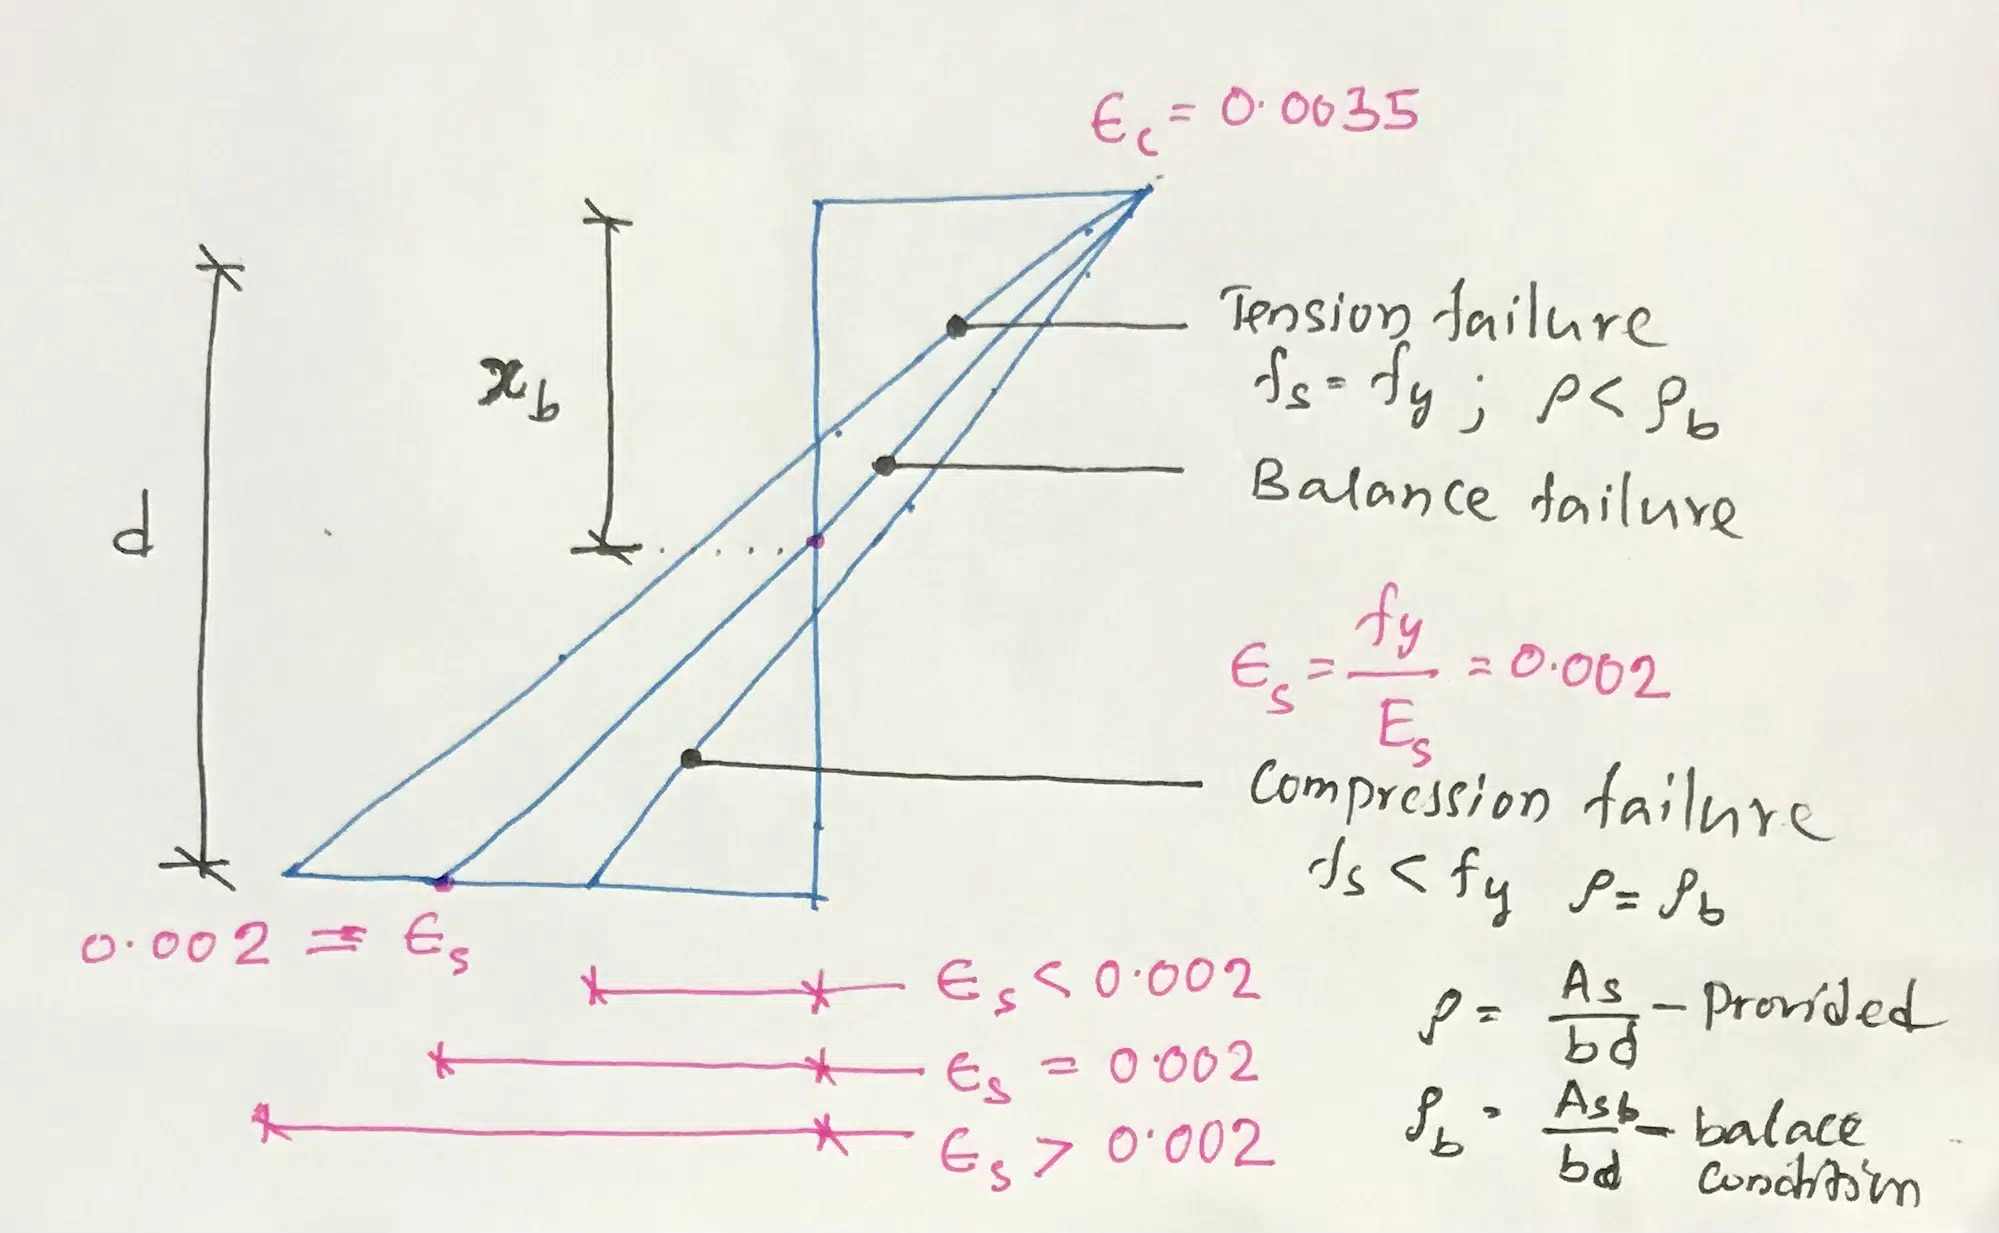 ϵc = 0.0035
xb
d
Tension failure
fs = fy ; ρ < ρb
Balance failure
ϵs = fy/Es = 0.002
Compression failure
fs < fy ρ = ρb
0.002 = ϵs
ϵs < 0.002
ϵs = 0.002
ϵs > 0.002
ρ = As/bd - Provided
ρb = Asb/bd - balace
condition